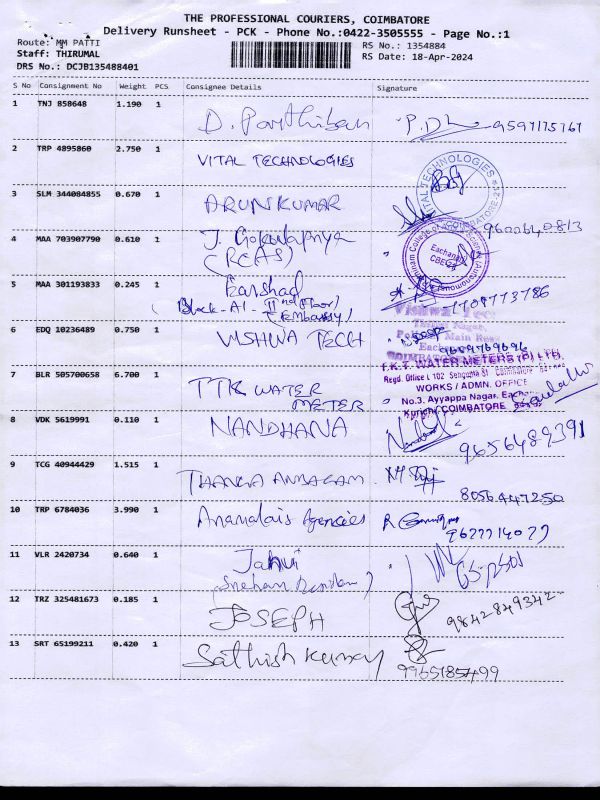 THE PROFESSIONAL COURIERS, COIMBATORE
Delivery Runsheet - PCK - Phone No.:0422-3505555 - Page No.:1
Route: MM PATTI
RS No.: 1354884
Staff: THIRUMAL
RS Date: 18-Apr-2024
DRS No.: DCJB135488401
S No Consignment No Weight PCS Consignee Details Signature
1 TNJ 858648 1.190 1 D. Parthiban 9597175767
2 TRP 4895860 2.750 1 VITAL TECHNOLOGIES
VITAL TECHNOLOGIES
COIMBATORE
3 SLM 344084855 0.670 1 ARUNKUMAR 9600640813
4 MAA 703907790 0.610 1 J.
(RCAS)
Eachanari
5 MAA 301193833 0.245 1 Farshad 1709773786
Block-A1- IInd Floor)
(Embassy)
6 EDQ 10236489 0.750 1 VISHWA TECH 9659769696
7 BLR 505700658 6.700 1 TTK WATER METER
T.K.T. WATER METERS (P) LTD,
WORKS / ADMN. OFFICE
No.3, Ayyappa Nagar,
Kurichi COIMBATORE
8 VDK 5619991 0.110 1 NANDHANA 9656489391
9 TCG 40944429 1.515 1 THANGA ANBAGAM 8056447250
10 TRP 6784036 3.990 1 Annamalais Agencies
11 VLR 2420734 0.640 1
12 TRZ 325481673 0.185 1 JOSEPH 9842849342
13 SRT 65199211 0.420 1 Sathish Kumar
9965185499